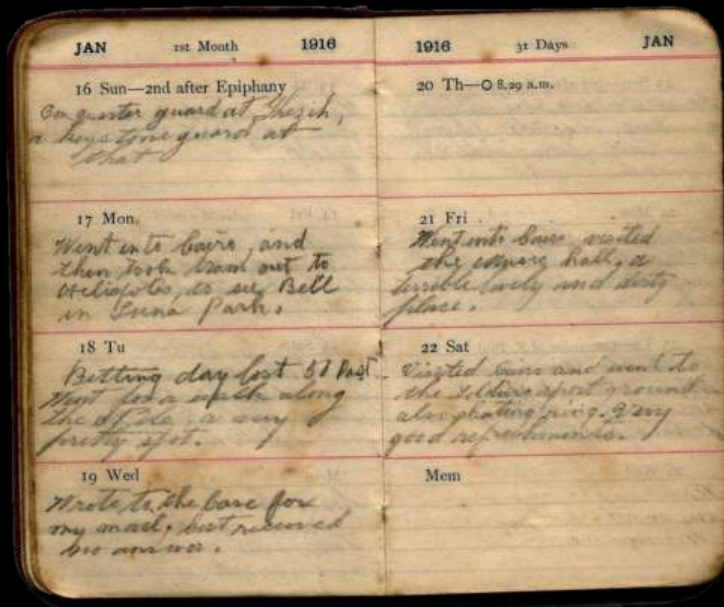 JAN 1st Month 1916
16 Sun—2nd after Epiphany
On quarter guard at
a keystone guard at
that
17 Mon.
Went into Cairo, and
then took tram out to
Heliopolis, to see Bell
in Luna Park.
18 Tu
Betting day lost
Went for a walk along
the Nile, a very
pretty spot.
19 Wed
Wrote to the base for
my mail, but received
no answer.
1916 31 Days JAN
20 Th—O 8.29 a.m.
21 Fri
Went into Cairo, visited
the hall, a
terrible lively and dirty
place.
22 Sat
Visited Cairo and went to
the sport ground
also skating ring. Very
good refreshments.
Mem